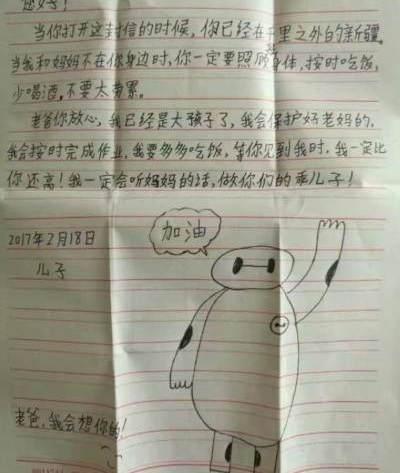 您好！
当你打开这封信的时候，你已经在千里之外的新疆，
当我和妈妈不在你身边时，你一定要照顾身体，按时吃饭，
少喝酒，不要太劳累。
老爸你放心，我已经是大孩子了，我会保护好老妈的，
我会按时完成作业，我要多多吃饭，等你见到我时，我一定比
你还高！我一定会听妈妈的话，做你们的乖儿子！
2017年2月18日
儿子
加油
老爸，我会想你的！